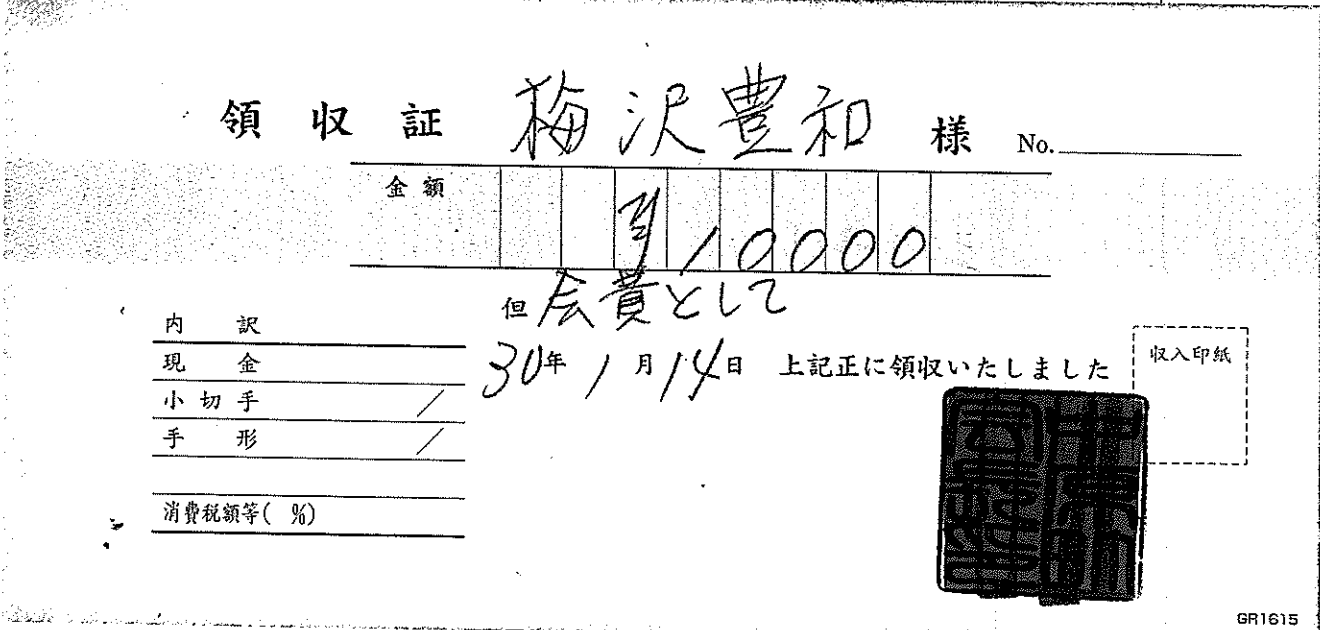 領収証 梅沢豊和 様 No.
金額 ¥10000
但 会費として
内訳
現金
30年1月14日 上記正に領収いたしました
収入印紙
小切手 /
手形 /
消費税額等( %)
GR1615